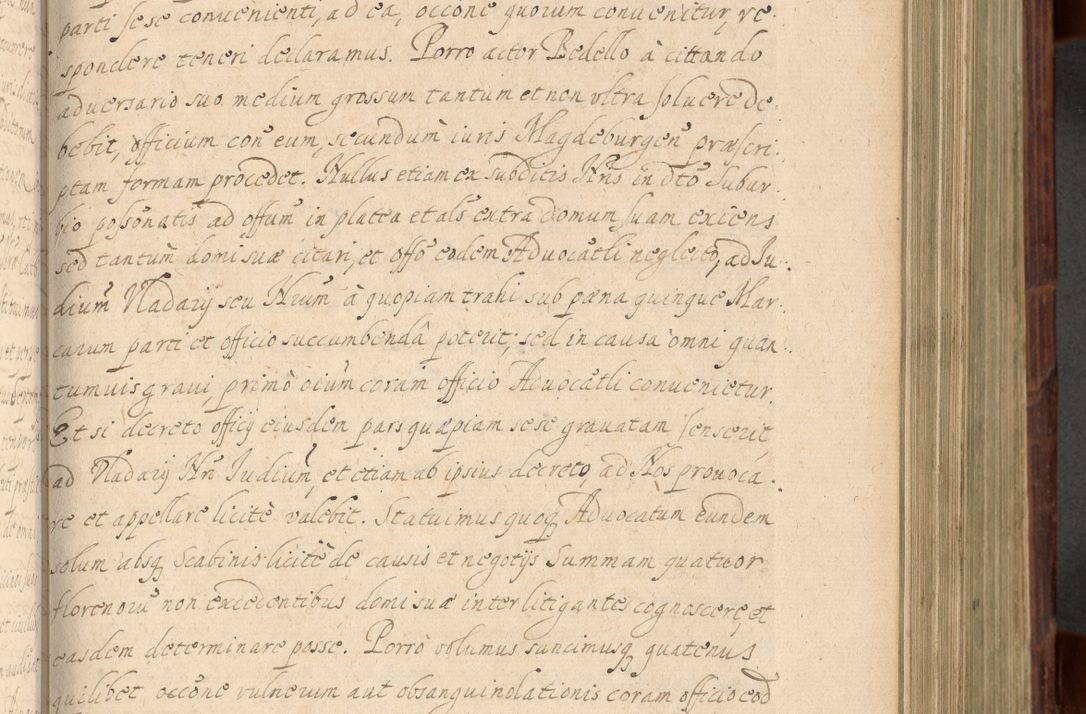 parti sese convenienti, ad ea, occōne quorum convenitur, re
spondere teneri declaramus. Porro actor Bedello à cittando
adversario suo medium grossum tantum et non vltra soluere de
bebit, officium con̄ eum, secundum̀ iuris Magdeburgen̄ præscri
ptam formam procedet. Nullus etiam ex subditis Nr̄is in d̄to Subur
bio posśonatis ad offum̄ in platea et al̄s extra domum suam exiens
sed tantum̀ domi suæ citari, et offō eodem Advocat̄li neglecto, ad Iu
dium̄ Vladarij seu Nrum̄ à quopiam trahi sub pæna quinque Mar
carum parti et officio succumbendâ poterit; sed in causa omni quan
tumuis graui primò oium̄ coram officio Advocat̄li convenietur.
Et si decreto officij eiusdem pars quæpiam sese gravatam senserit
ad Vladarij Nr̄i Iudium̄, et etiam ab ipsius decreto, ad Nos provoca
re et appellare licitè valebit. Statuimus quoq Advocatum eundem
solum absq Scabinis licitè de causis et negotijs Summam quatuor
florenorū non excedentibus domi suæ inter litigantes cognoscere, et
easdem determinare posse. Porrò volumus sancimusq quatenus
quilibet occōne vulnerum aut obsanguinolationis coram officio eod